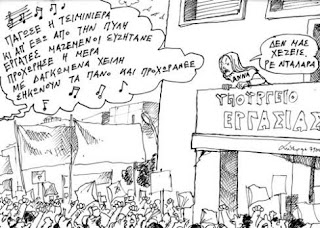 ΠΑΓΩΣΕ Η ΤΣΙΜΙΝΙΕΡΑ
ΚΙ ΑΠ' ΕΞΩ ΑΠΟ ΤΗΝ ΠΥΛΗ
ΕΡΓΑΤΕΣ ΜΑΖΕΜΕΝΟΙ ΣΥΖΗΤΑΝΕ
ΠΡΟΧΩΡΗΣΕ Η ΜΕΡΑ
ΜΕ ΔΑΓΚΩΜΕΝΑ ΧΕΙΛΗ
ΣΗΚΩΝΟΥΝ ΤΑ ΠΑΝΟ ΚΑΙ ΠΡΟΧΩΡΑΝΕΕ
ΔΕΝ ΜΑΣ
ΧΕΖΕΙΣ,
ΡΕ ΝΤΑΛΑΡΑ
ΑΝΝΑ
ΥΠΟΥΡΓΕΙΟ
ΕΡΓΑΣΙΑΣ